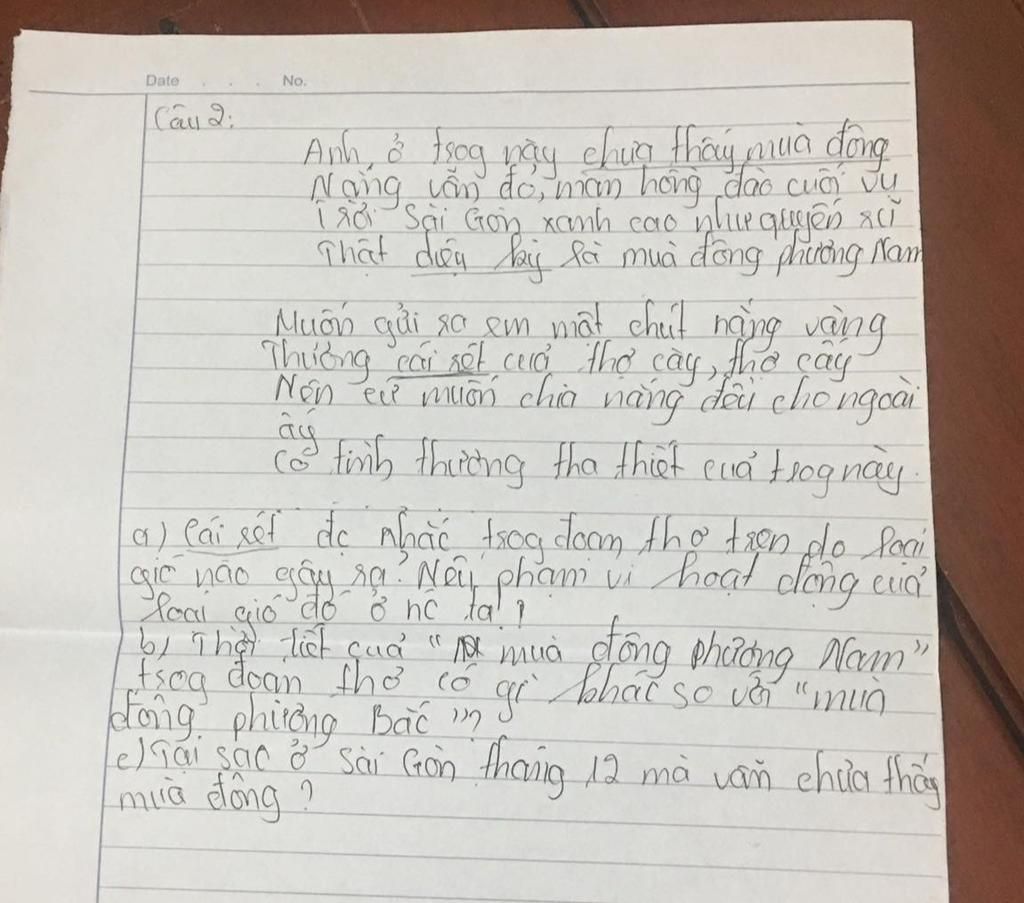 Date . . . No.
Câu 2:
Anh, ở trog này chưa thấy mùa đông
Nắng vẫn đỏ, mận hồng đào cuối vụ
Trời Sài Gòn xanh cao như quyến rũ
Thật diệu kỳ là mùa đông phương Nam
Muốn gửi ra em một chút nắng vàng
Thương cái rét của thợ cày, thợ cấy
Nên cứ muốn chia nắng đều cho ngoài
ấy
Có tình thương tha thiết của trog này.
a) Cái rét đc nhắc trog đoạn thơ trên do loại
gió nào gây ra? Nêu phạm vi hoạt động của
loại gió đó ở nc ta?
b) Thời tiết của " mùa đông phương Nam"
trog đoạn thơ có gì khác so với "mùa
đông phương Bắc"?
c) Tại sao ở Sài Gòn tháng 12 mà vẫn chưa thấy
mùa đông?